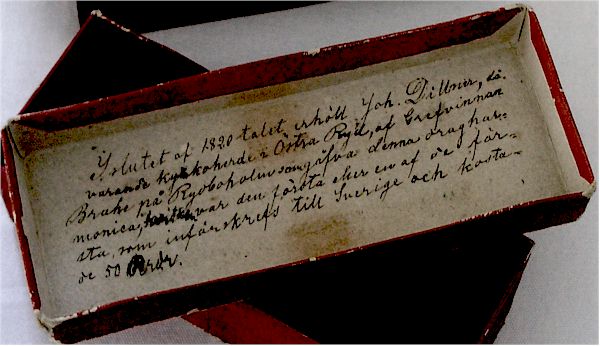 I slutet af 1820 talet erhöll Joh. Dillner, då-
varande kyrkoherde i Östra Ryd, af Grefvinnan
Brahe på Rydboholm som gåfva denna draghar-
monica, var den första eller en af de för-
sta, som införskrefs till Sverige och kosta-
de 50